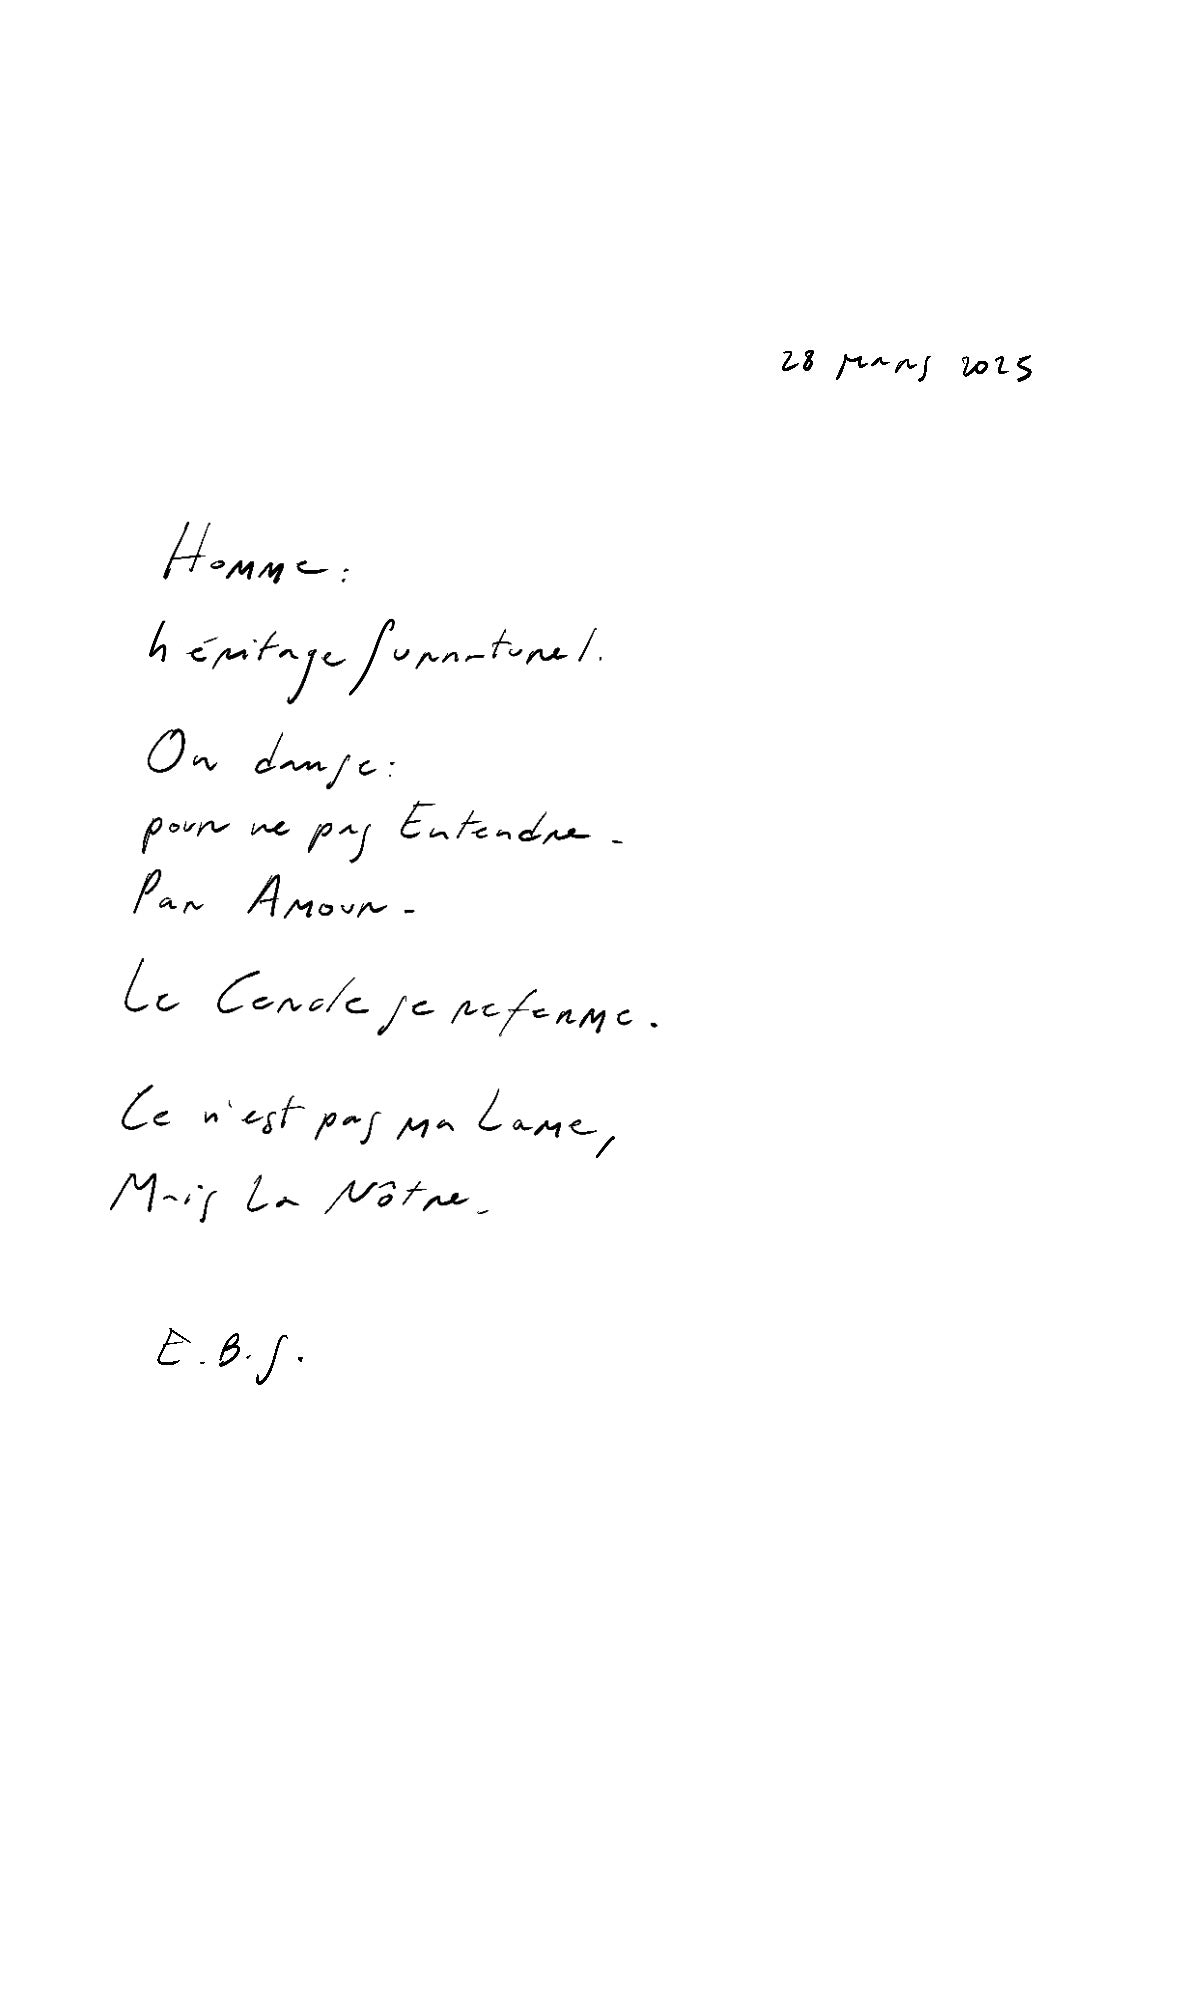 28 mars 2025
Homme :
héritage surnaturel.
On danse :
pour ne pas Entendre.
Par Amour.
Le Cercle se referme.
Ce n'est pas ma Lame,
Mais La Nôtre.
E.B.S.